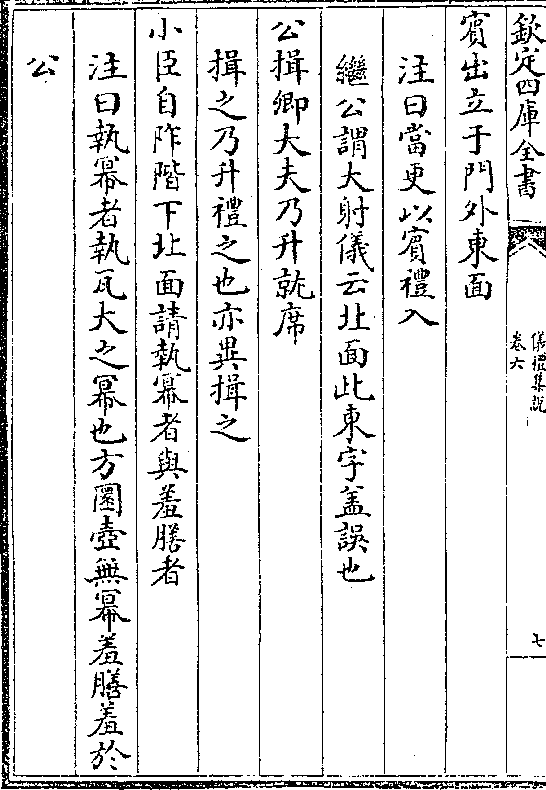 欽定四庫全書
儀禮集說
卷六
七
賓出立于門外東面
注曰當更以賓禮入
繼公謂大射儀云北面此東字葢誤也
公揖卿大夫乃升就席
揖之乃升禮之也亦異揖之
小臣自阼階下北面請執冪者與羞膳者
注曰執冪者執瓦大之冪也方圜壺無冪羞膳羞於
公